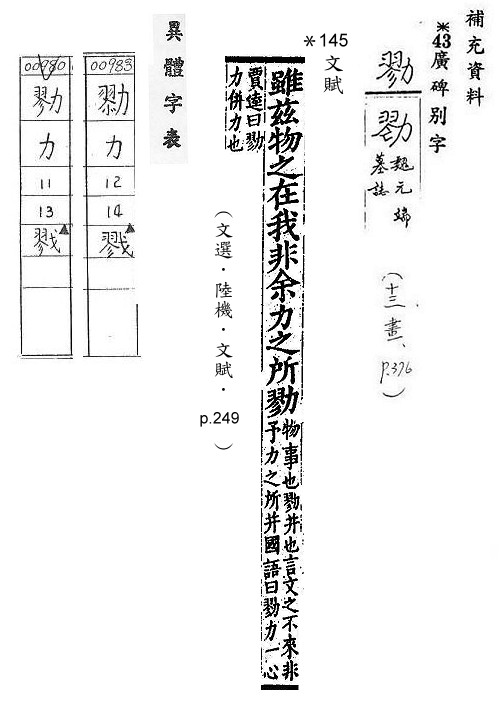 補充資料
※43廣碑別字
勠
魏元端
墓誌
(十三畫、
p.376)
※145
文賦
雖茲物之在我非余力之所勠
物事也勠并也言文之不來非
予力之所并國語曰勠力一心
賈逵曰勠
力併力也
(文選.陸機.文賦.
p.249)
異體字表
00983
力
12
14
00980
勠
力
11
13
戮